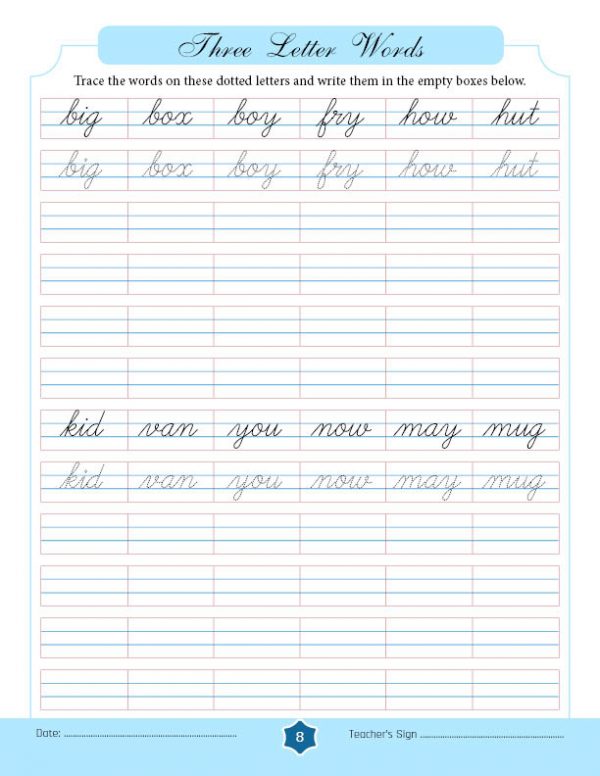 Three Letter Words
Trace the words on these dotted letters and write them in the empty boxes below.
big box boy fry how hut
big box boy fry how hut
kid van you now may mug
kid van you now may mug
Date: ........................................................ 8 Teacher's Sign ..............................................